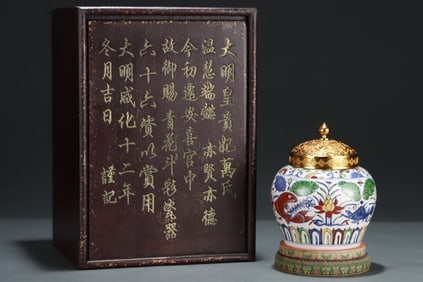 大明皇貴妃萬氏
温慧端懿亦賢亦德
今初遷安喜宫中
故御賜青花斗彩瓷器
六十六资以賞用
大明成化十二年
冬月吉日 謹記